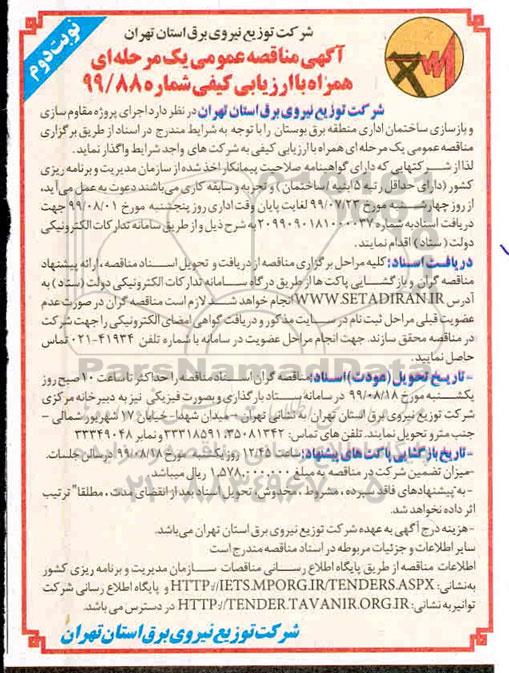 نوبت دوم
شرکت توزیع نیروی برق استان تهران
آگهی مناقصه عمومی یک مرحله ای
همراه با ارزیابی کیفی شماره ۹۹/۸۸
شرکت توزیع نیروی برق استان تهران در نظر دارد اجرای پروژه مقاوم سازی
و بازسازی ساختمان اداری منطقه برق بوستان را با توجه به شرایط مندرج در اسناد از طریق برگزاری
مناقصه عمومی یک مرحله ای همراه با ارزیابی کیفی به شرکت های واجد شرایط واگذار نماید.
لذا از شرکتهایی که دارای گواهینامه صلاحیت پیمانکار اخذ شده از سازمان مدیریت و برنامه ریزی
کشور (دارای حداقل رتبه ۵ ابنیه / ساختمان) و تجربه و سابقه کاری می باشند دعوت به عمل می آید،
از روز چهارشنبه مورخ ۹۹/۰۷/۲۳ لغایت پایان وقت اداری روز پنجشنبه مورخ ۹۹/۰۸/۰۱ جهت
دریافت اسناد به شماره ۲۰۹۹۰۹۰۱۸۱۰۰۰۰۳۷ به شرح ذیل و از طریق سامانه تدارکات الکترونیکی
دولت (ستاد) اقدام نمایند.
دریافت اسناد: کلیه مراحل برگزاری مناقصه از دریافت و تحویل اسناد مناقصه، ارائه پیشنهاد
مناقصه گران و بازگشایی پاکت ها از طریق درگاه سامانه تدارکات الکترونیکی دولت (ستاد) به
آدرس WWW.SETADIRAN.IR انجام خواهد شد. لازم است مناقصه گران در صورت عدم
عضویت قبلی مراحل ثبت نام در سایت مذکور و دریافت گواهی امضای الکترونیکی را جهت شرکت
در مناقصه محقق سازند. جهت انجام مراحل عضویت در سامانه با شماره تلفن ۴۱۹۳۴-۰۲۱ تماس
حاصل نمایید.
-تاریخ تحویل (عودت) اسناد: مناقصه گران اسناد مناقصه را حداکثر تا ساعت ۱۰ صبح روز
یکشنبه مورخ ۹۹/۰۸/۱۸ در سامانه ستاد بارگذاری و بصورت فیزیکی نیز به دبیرخانه مرکزی
شرکت توزیع نیروی برق استان تهران به نشانی تهران - میدان شهدا- خیابان ۱۷ شهریور شمالی -
جنب مترو تحویل نمایند. تلفن های تماس: ۳۵۰۸۱۳۴۲، ۳۳۳۱۸۵۹۱ و نمابر ۳۳۳۴۹۰۴۸
-تاریخ بازگشایی پاکت های پیشنهاد: ساعت ۱۲:۴۵ روز یکشنبه مورخ ۹۹/۰۸/۱۸ در سالن جلسات.
-میزان تضمین شرکت در مناقصه به مبلغ ۱.۵۷۸.۰۰۰.۰۰۰ ریال میباشد
- به پیشنهادهای فاقد سپرده، مشروط، مخدوش، تحویل اسناد بعد از انقضای مدت، مطلقا" ترتیب
اثر داده نخواهد شد.
-هزینه درج آگهی به عهده شرکت توزیع نیروی برق استان تهران می باشد.
سایر اطلاعات و جزئیات مربوطه در اسناد مناقصه مندرج است
اطلاعات مناقصه از طریق پایگاه اطلاع رسانی مناقصات سازمان مدیریت و برنامه ریزی کشور
به نشانی: HTTP://IETS.MPORG.IR/TENDERS.ASPX و پایگاه اطلاع رسانی شرکت
توانیر به نشانی: HTTP://TENDER.TAVANIR.ORG.IR در دسترس می باشد.
شرکت توزیع نیروی برق استان تهران
ParsNamadData
۰۲۱-۸۸۳۴۹۶۷۰-۵